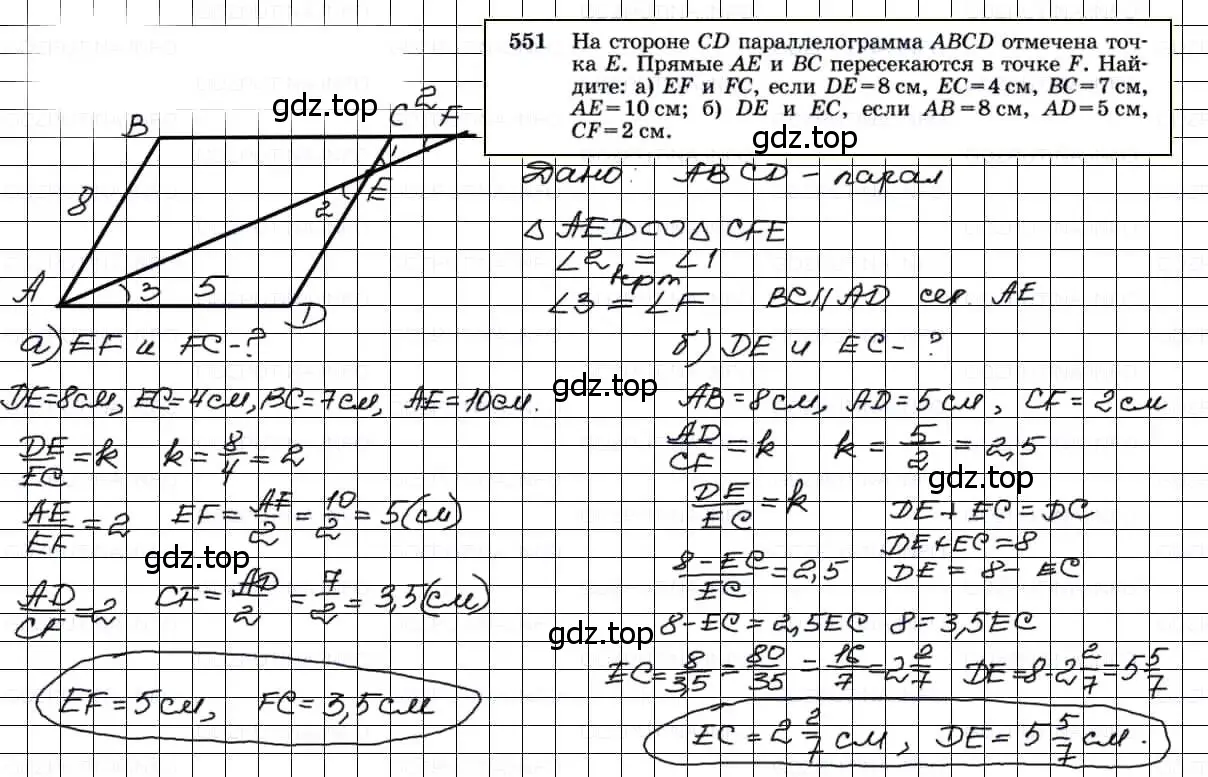 551 На стороне CD параллелограмма ABCD отмечена точ-
ка E. Прямые AE и BC пересекаются в точке F. Най-
дите: а) EF и FC, если DE=8 см, EC=4 см, BC=7 см,
AE=10 см; б) DE и EC, если AB=8 см, AD=5 см,
CF=2 см.
gdz.top
gdz.top
B C 2 F
1
E
2
8
A 3 5 D
Дано: ABCD - парал
△ AED ∽ △ CFE
∠2 = ∠1
верт
∠3 = ∠F BC || AD сек. AE
а) EF и FC - ?
DE=8см, EC=4см, BC=7см, AE=10см.
gdz.top
DE/EC = k k = 8/4 = 2
AE/EF = 2 EF = AE/2 = 10/2 = 5 (см)
gdz.top
AD/CF = 2 CF = AD/2 = 7/2 = 3,5 (см)
EF = 5 см, FC = 3,5 см
б) DE и EC - ?
AB = 8 см, AD = 5 см, CF = 2 см
AD/CF = k k = 5/2 = 2,5
gdz.top
DE/EC = k DE + EC = DC
DE + EC = 8
8 - EC/EC = 2,5 DE = 8 - EC
gdz.top
8 - EC = 2,5 EC 8 = 3,5 EC
EC = 8/3,5 = 80/35 = 16/7 = 2 2/7 DE = 8 - 2 2/7 = 5 5/7
EC = 2 2/7 см, DE = 5 5/7 см.